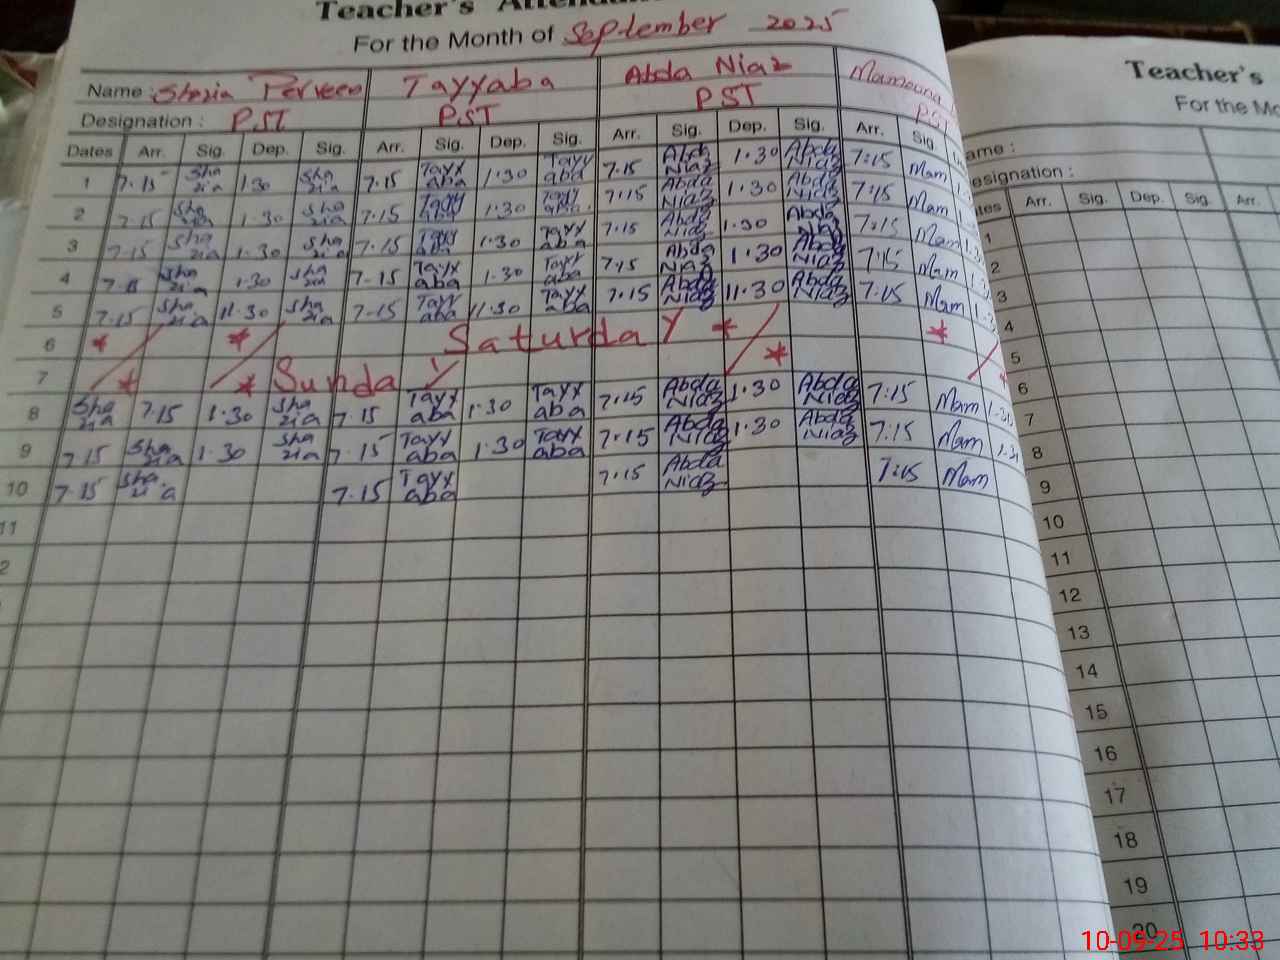 Teacher's
For the Month of September 2025
Name : Shazia Perveen Tayyaba Abda Niaz Mamoona
Designation : PST PST PST PST
Dates Arr. Sig. Dep. Sig. Arr. Sig. Dep. Sig. Arr. Sig. Dep. Sig. Arr. Sig.
1 7.15 Shazia 1.30 Shazia 7.15 Tayyaba 1.30 Tayyaba 7.15 Abda Niaz 1.30 Abda Niaz 7:15 Mam
2 7.15 Shazia 1.30 Shazia 7.15 Tayyaba 1.30 Tayyaba 7.15 Abda Niaz 1.30 Abda Niaz 7:15 Mam
3 7.15 Shazia 1.30 Shazia 7.15 Tayyaba 1.30 Tayyaba 7.15 Abda Niaz 1.30 Abda Niaz 7:15 Mam
4 7.15 Shazia 1.30 Shazia 7.15 Tayyaba 1.30 Tayyaba 7.15 Abda Niaz 1.30 Abda Niaz 7:15 Mam
5 7.15 Shazia 11.30 Shazia 7.15 Tayyaba 11.30 Tayyaba 7.15 Abda Niaz 11.30 Abda Niaz 7:15 Mam
6 * * Saturday * *
7 * * Sunday *
8 Shazia 7.15 1.30 Shazia 7.15 Tayyaba 1.30 Tayyaba 7.15 Abda Niaz 1.30 Abda Niaz 7:15 Mam
9 7.15 Shazia 1.30 Shazia 7.15 Tayyaba 1.30 Tayyaba 7.15 Abda Niaz 1.30 Abda Niaz 7:15 Mam
10 7.15 Shazia 7.15 Tayyaba 7.15 Abda Niaz 7:15 Mam
11
Teacher's
For the
Designation :
Arr. Sig. Dep. Sig. Arr.
1
2
3
4
5
6
7
8
9
10
11
12
13
14
15
16
17
18
19
20
10-09-25 10:33